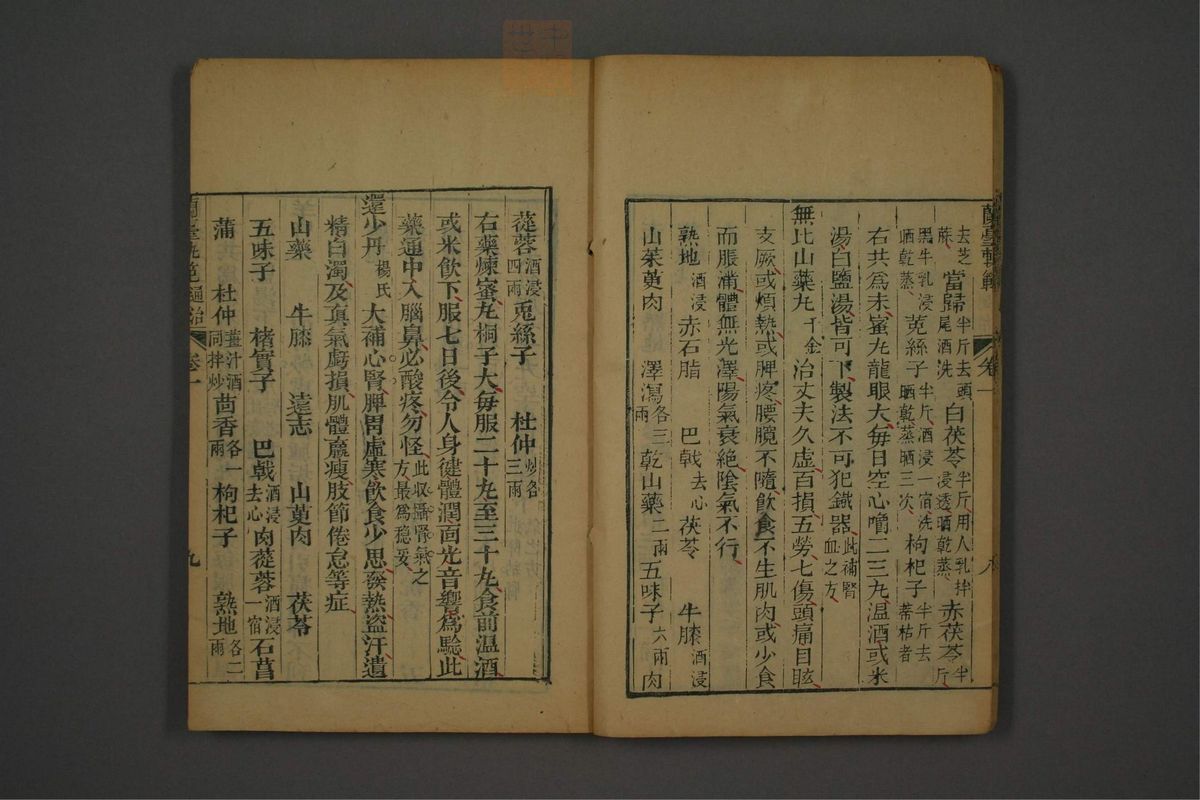 去芝麻黑牛乳浸晒乾蒸 當歸半斤去頭尾酒洗 白茯苓半斤用人乳拌浸透晒乾蒸 赤茯苓半斤
菟絲子半斤酒浸一宿洗晒乾蒸晒三次 枸杞子半斤去蒂枯者
右共爲末蜜丸龍眼大毎日空心嚼二三丸温酒或米
湯白鹽湯皆可下製法不可犯鐵器此補腎血之方
無比山藥丸千金 治丈夫久虛百損五勞七傷頭痛目眩
支厥或煩熱或脾疼腰髖不隨飲食不生肌肉或少食
而脹滿體無光澤陽氣衰絶陰氣不行
熟地酒浸 赤石脂 巴戟去心 茯苓 牛膝酒浸
山茱萸肉 澤瀉各三兩 乾山藥二兩 五味子六兩 肉
八
蓯蓉酒浸四兩 兎絲子 杜仲炒各三兩
右藥煉蜜丸桐子大毎服二十丸至三十丸食前温酒
或米飲下服七日後令人身健體潤面光音響爲驗此
藥通中入腦鼻必酸疼勿怪此收攝腎氣之方最爲穩妥
還少丹楊氏 大補心腎脾胃虛寒飲食少思發熱盜汗遺
精白濁及真氣虧損肌體羸瘦肢節倦怠等症
山藥 牛膝 遠志 山萸肉 茯苓
五味子 楮實子 巴戟酒浸去心 肉蓯蓉酒浸一宿 石菖
蒲 杜仲薑汁酒同拌炒 茴香各一兩 枸杞子 熟地各二兩
蘭臺軌範 通治 卷一 九